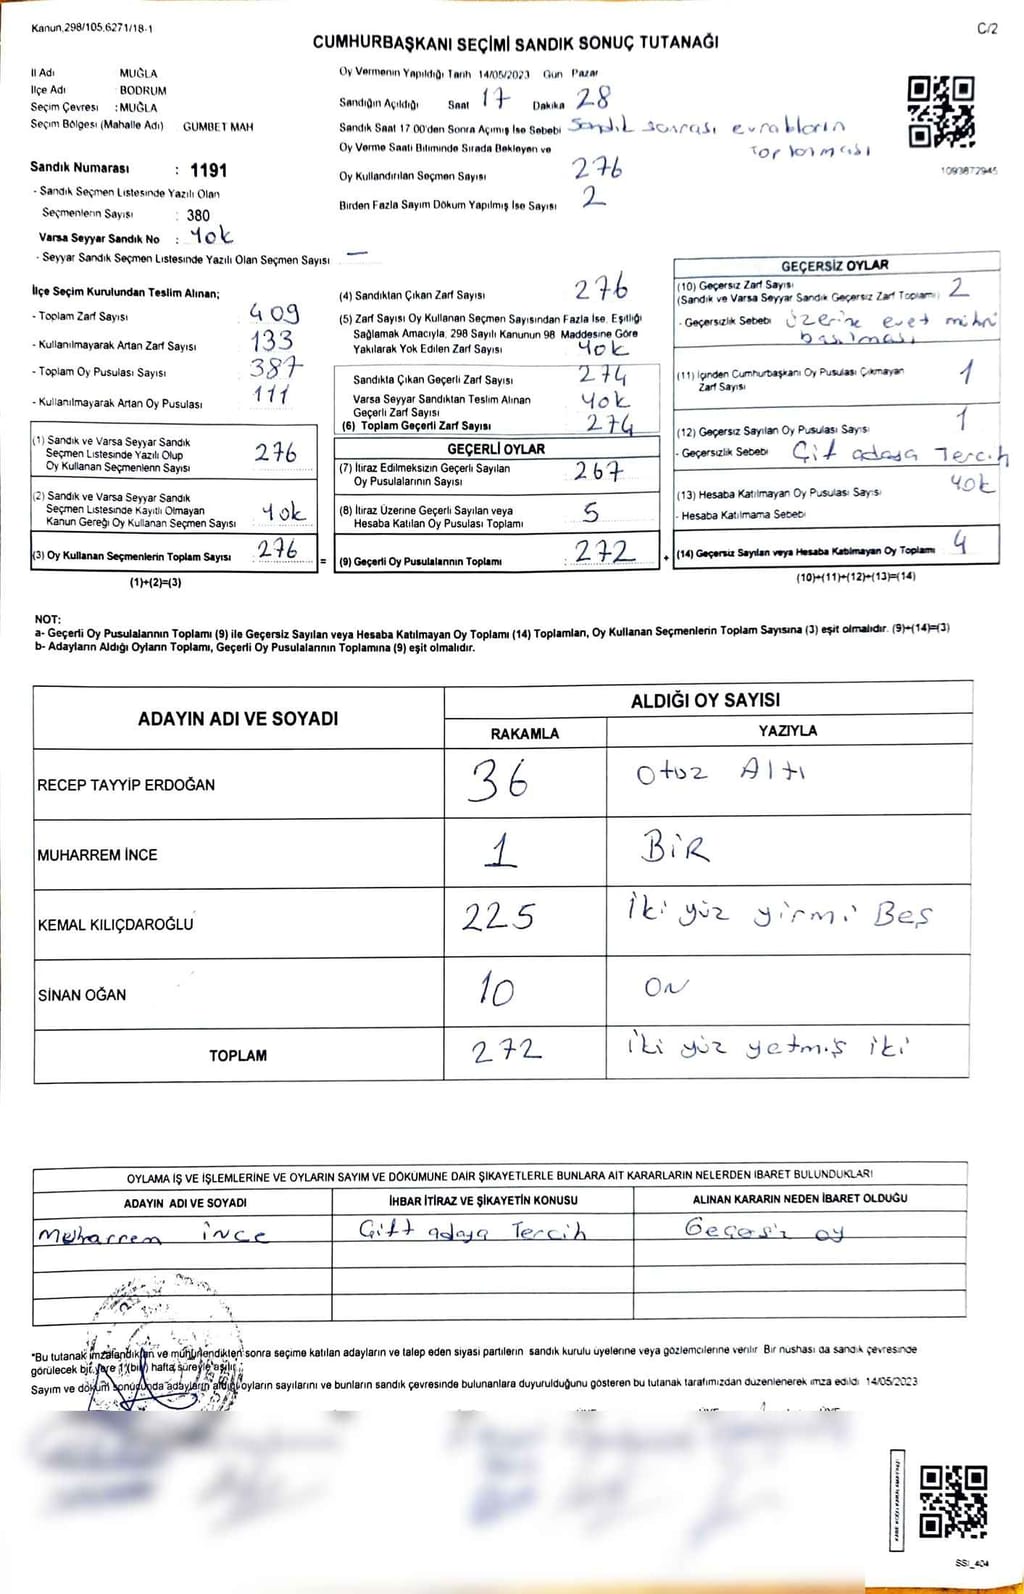 Kanun,298/105,6271/18-1
C/2
CUMHURBAŞKANI SEÇİMİ SANDIK SONUÇ TUTANAĞI
İl Adı MUĞLA
İlçe Adı BODRUM
Seçim Çevresi : MUĞLA
Seçim Bölgesi (Mahalle Adı) GUMBET MAH
Oy Vermenin Yapıldığı Tarih 14/05/2023 Gün Pazar
Sandığın Açıldığı Saat 17 Dakika 28
Sandık Saat 17 00'den Sonra Açılmış İse Sebebi Sandık sonrası evrakların
toplanması
Oy Verme Saati Bitiminde Sırada Bekleyen ve
Oy Kullandırılan Seçmen Sayısı 276
Birden Fazla Sayım Döküm Yapılmış İse Sayısı 2
1093872945
Sandık Numarası : 1191
- Sandık Seçmen Listesinde Yazılı Olan
Seçmenlerin Sayısı : 380
Varsa Seyyar Sandık No : Yok
- Seyyar Sandık Seçmen Listesinde Yazılı Olan Seçmen Sayısı —
İlçe Seçim Kurulundan Teslim Alınan;
- Toplam Zarf Sayısı 409
- Kullanılmayarak Artan Zarf Sayısı 133
- Toplam Oy Pusulası Sayısı 387
- Kullanılmayarak Artan Oy Pusulası 111
(1) Sandık ve Varsa Seyyar Sandık
Seçmen Listesinde Yazılı Olup
Oy Kullanan Seçmenlerin Sayısı 276
(2) Sandık ve Varsa Seyyar Sandık
Seçmen Listesinde Kayıtlı Olmayan
Kanun Gereği Oy Kullanan Seçmen Sayısı Yok
(3) Oy Kullanan Seçmenlerin Toplam Sayısı 276 =
(1)+(2)=(3)
(4) Sandıktan Çıkan Zarf Sayısı 276
(5) Zarf Sayısı Oy Kullanan Seçmen Sayısından Fazla İse, Eşitliği
Sağlamak Amacıyla, 298 Sayılı Kanunun 98 Maddesine Göre
Yakılarak Yok Edilen Zarf Sayısı Yok
Sandıkta Çıkan Geçerli Zarf Sayısı 274
Varsa Seyyar Sandıktan Teslim Alınan
Geçerli Zarf Sayısı Yok
(6) Toplam Geçerli Zarf Sayısı 274
GEÇERLİ OYLAR
(7) İtiraz Edilmeksizin Geçerli Sayılan
Oy Pusulalarının Sayısı 267
(8) İtiraz Üzerine Geçerli Sayılan veya
Hesaba Katılan Oy Pusulası Toplamı 5
(9) Geçerli Oy Pusulalarının Toplamı 272 +
GEÇERSİZ OYLAR
(10) Geçersiz Zarf Sayısı
(Sandık ve Varsa Seyyar Sandık Geçersiz Zarf Toplamı) 2
- Geçersizlik Sebebi üzerine evet mührü
basılması
(11) İçinden Cumhurbaşkanı Oy Pusulası Çıkmayan
Zarf Sayısı 1
(12) Geçersiz Sayılan Oy Pusulası Sayısı 1
- Geçersizlik Sebebi Çift adaya Tercih
(13) Hesaba Katılmayan Oy Pusulası Sayısı Yok
- Hesaba Katılmama Sebebi
(14) Geçersiz Sayılan veya Hesaba Katılmayan Oy Toplamı 4
(10)+(11)+(12)+(13)=(14)
NOT:
a- Geçerli Oy Pusulalarının Toplamı (9) ile Geçersiz Sayılan veya Hesaba Katılmayan Oy Toplamı (14) Toplamları, Oy Kullanan Seçmenlerin Toplam Sayısına (3) eşit olmalıdır. (9)+(14)=(3)
b- Adayların Aldığı Oyların Toplamı, Geçerli Oy Pusulalarının Toplamına (9) eşit olmalıdır.
ADAYIN ADI VE SOYADI ALDIĞI OY SAYISI
RAKAMLA YAZIYLA
RECEP TAYYİP ERDOĞAN 36 Otuz Altı
MUHARREM İNCE 1 BİR
KEMAL KILIÇDAROĞLU 225 İki yüz yirmi Beş
SİNAN OĞAN 10 ON
TOPLAM 272 İki yüz yetmiş iki
OYLAMA İŞ VE İŞLEMLERİNE VE OYLARIN SAYIM VE DÖKÜMÜNE DAİR ŞİKAYETLERLE BUNLARA AİT KARARLARIN NELERDEN İBARET BULUNDUKLARI
ADAYIN ADI VE SOYADI İHBAR İTİRAZ VE ŞİKAYETİN KONUSU ALINAN KARARIN NEDEN İBARET OLDUĞU
Muharrem İNCE Çift adaya Tercih Geçersiz oy
*Bu tutanak imzalandıktan ve mühürlendikten sonra seçime katılan adayların ve talep eden siyasi partilerin sandık kurulu üyelerine veya gözlemcilerine verilir. Bir nüshası da sandık çevresinde
görülecek bir yere 1 (bir) hafta süreyle asılır.
Sayım ve döküm sonucunda adayların aldığı oyların sayılarını ve bunların sandık çevresinde bulunanlara duyurulduğunu gösteren bu tutanak tarafımızdan düzenlenerek imza edildi 14/05/2023
SSI_404